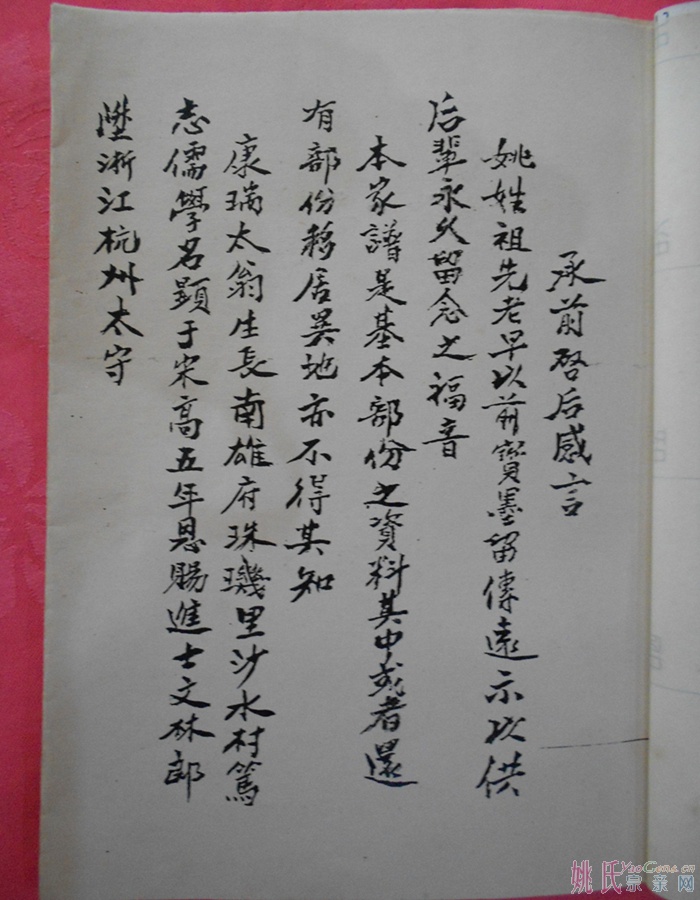 承前啓后感言
姚姓祖先老早以前寳墨留傳遠示以供
后輩永久留念之福音
本家譜是基本部份之資料其中或者還
有部份移居異地亦不得其知
康瑞太翁生長南雄府珠璣里沙水村篤
志儒學名顕于宋高五年恩賜進士文林郎
陞浙江杭州太守
姚氏宗亲网
YaoGens.cn